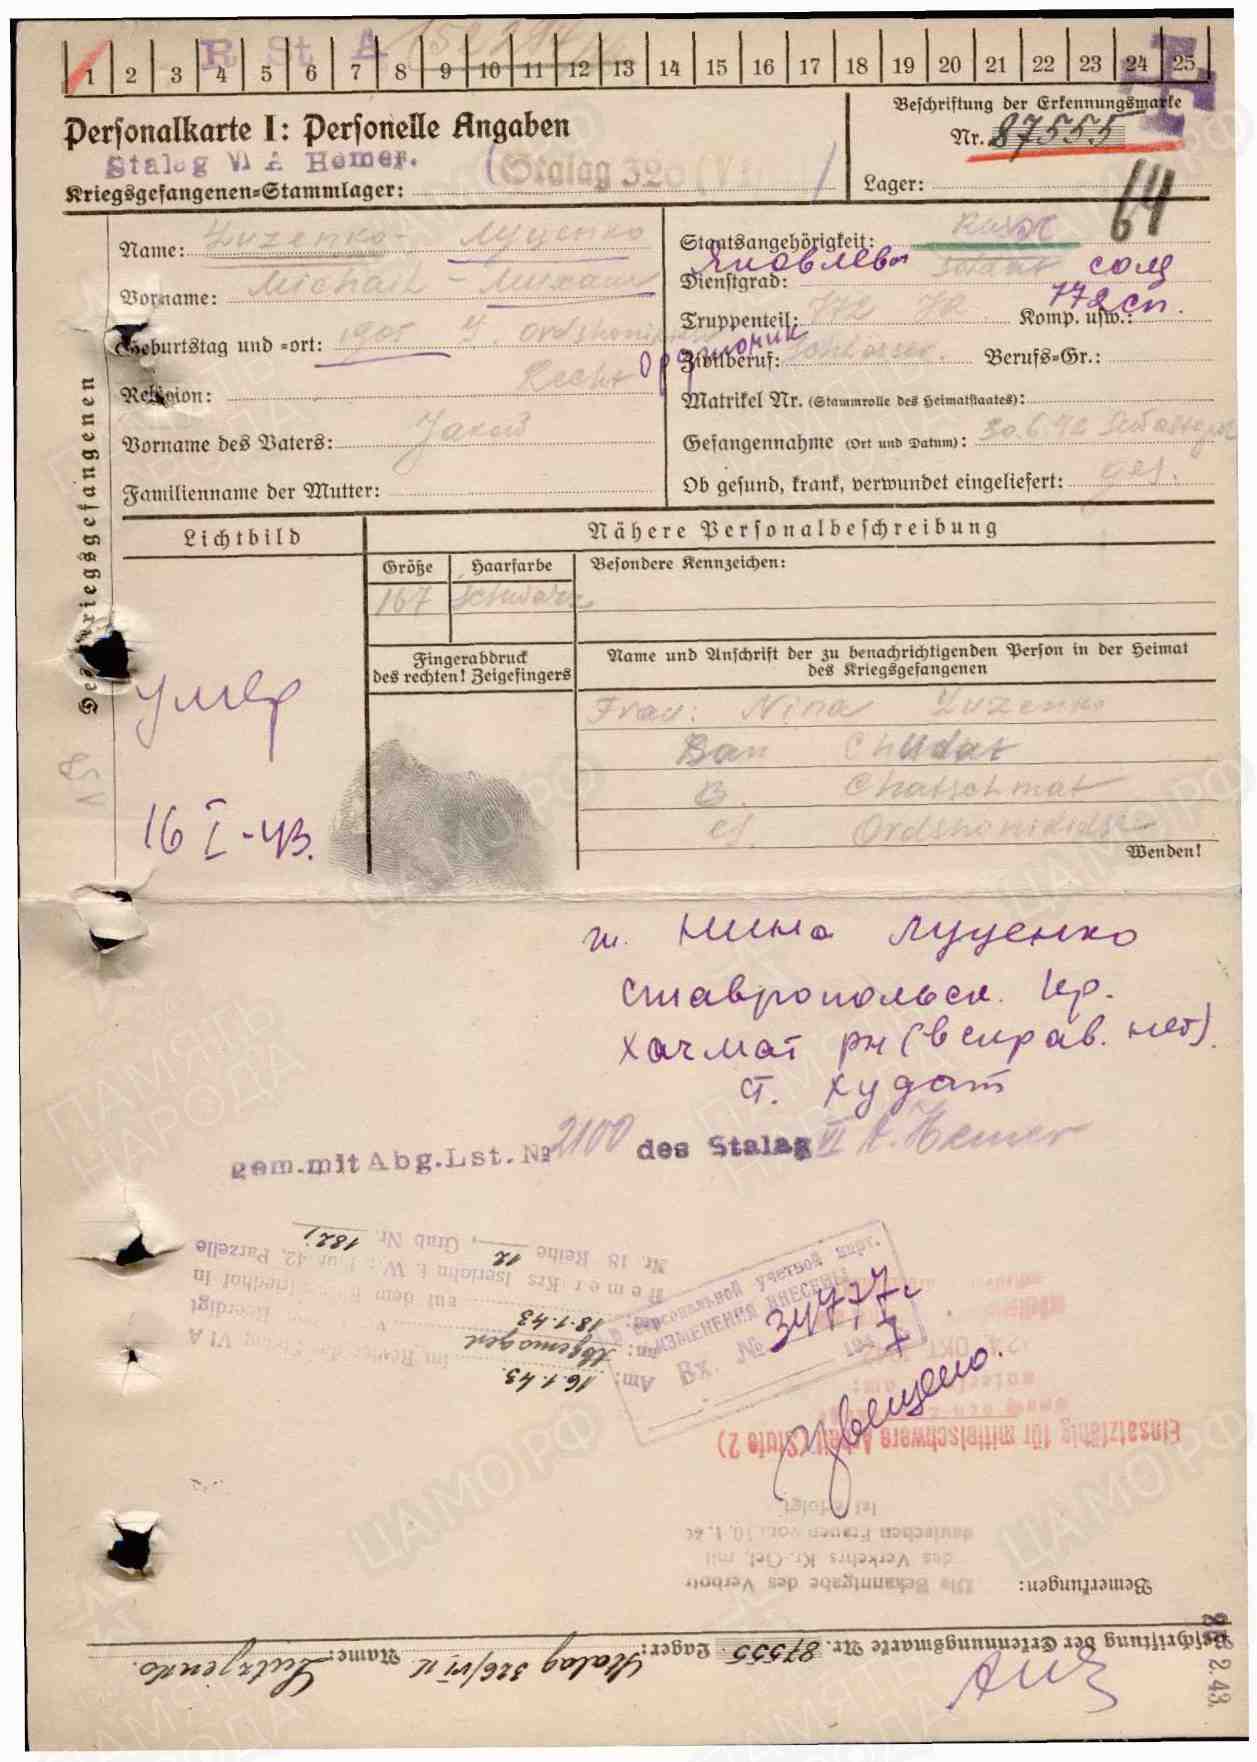 R St A
1 2 3 4 5 6 7 8 9 10 11 12 13 14 15 16 17 18 19 20 21 22 23 24 25
Personalkarte I: Personelle Angaben
Beschriftung der Erkennungsmarke
Nr. 87555
Stalag VI A Hemer.
(Stalag 326
Kriegsgefangenen-Stammlager:
Lager:
64
Name: Luzenko - Луценко
Staatsangehörigkeit: Russe
Яковлевич
Vorname: Michail - Михаил
Dienstgrad: Soldat сол
Truppenteil: 772 JR Komp. usw.: 772 сп.
Geburtstag und -ort: 1905 Ordshoni
Zivilberuf: Schlosser. Berufs-Gr.:
Religion:
Matrikel Nr. (Stammrolle des Heimatstaates):
Vorname des Vaters: Jakow
Gefangennahme (Ort und Datum): 30.6.42 Sewastopol
Familienname der Mutter:
Ob gesund, krank, verwundet eingeliefert: ges.
Des Kriegsgefangenen
Lichtbild
Nähere Personalbeschreibung
Größe
Haarfarbe
Besondere Kennzeichen:
167 schwarz
Fingerabdruck
des rechten! Zeigefingers
Name und Anschrift der zu benachrichtigenden Person in der Heimat
des Kriegsgefangenen
Frau: Nina Luzenko
Ban Chudat
Chatschmat
Ordshonikidse
Wenden!
умер
16 I-43.
ж. Нина Луценко
Ставропольск. кр.
Хачмат рн (в справ. нет).
ст. Худат
gem. mit Abg. Lst. № 2100 des Stalag VI A. Hemer
персональной учетной карт.
ИЗМЕНЕНИЯ ВНЕСЕНЫ
Вх. № 34777с
194 7
Извещено.
Am: 16.1.43.
im Revier des Stalag VI A
18.1.43 Beerdigt
auf dem
Hemer Krs Iserlohn i. W.: Flur 42, Parzelle
Nr. 18 Reihe 12, Grab Nr. 182)
Einsatzfähig für mittelschwere Arbeit (Stufe 2)
Bemerkungen:
Die Bekanntgabe des Verbots
des Verkehrs Kr.-Gef. mit
deutschen Frauen vom 10.1.42
ist erfolgt
Beschriftung der Erkennungsmarke Nr. 87555 Lager: Stalag 326/VI K Name: Lutzjenko.
2.43.